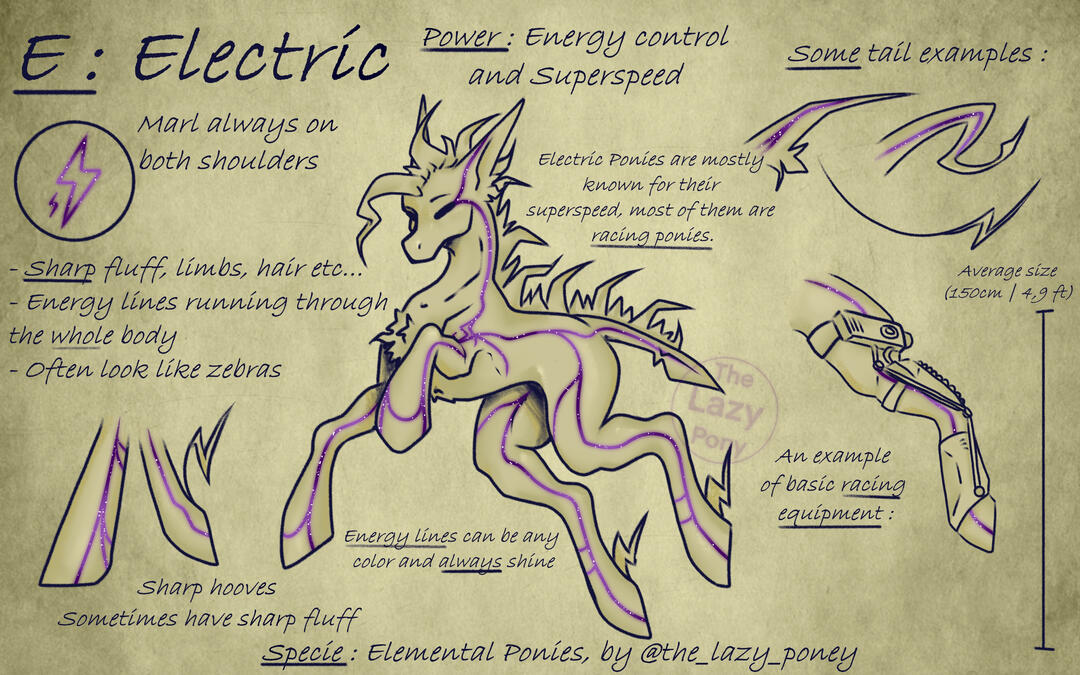 E : Electric
Power : Energy control
and Superspeed
Some tail examples :
Marl always on
both shoulders
Electric Ponies are mostly
known for their
superspeed, most of them are
racing ponies.
- Sharp fluff, limbs, hair etc...
- Energy lines running through
the whole body
- Often look like zebras
Average size
(150cm | 4,9 ft)
The
Lazy
Pony
An example
of basic racing
equipment :
Energy lines can be any
color and always shine
Sharp hooves
Sometimes have sharp fluff
Specie : Elemental Ponies, by @the_lazy_poney